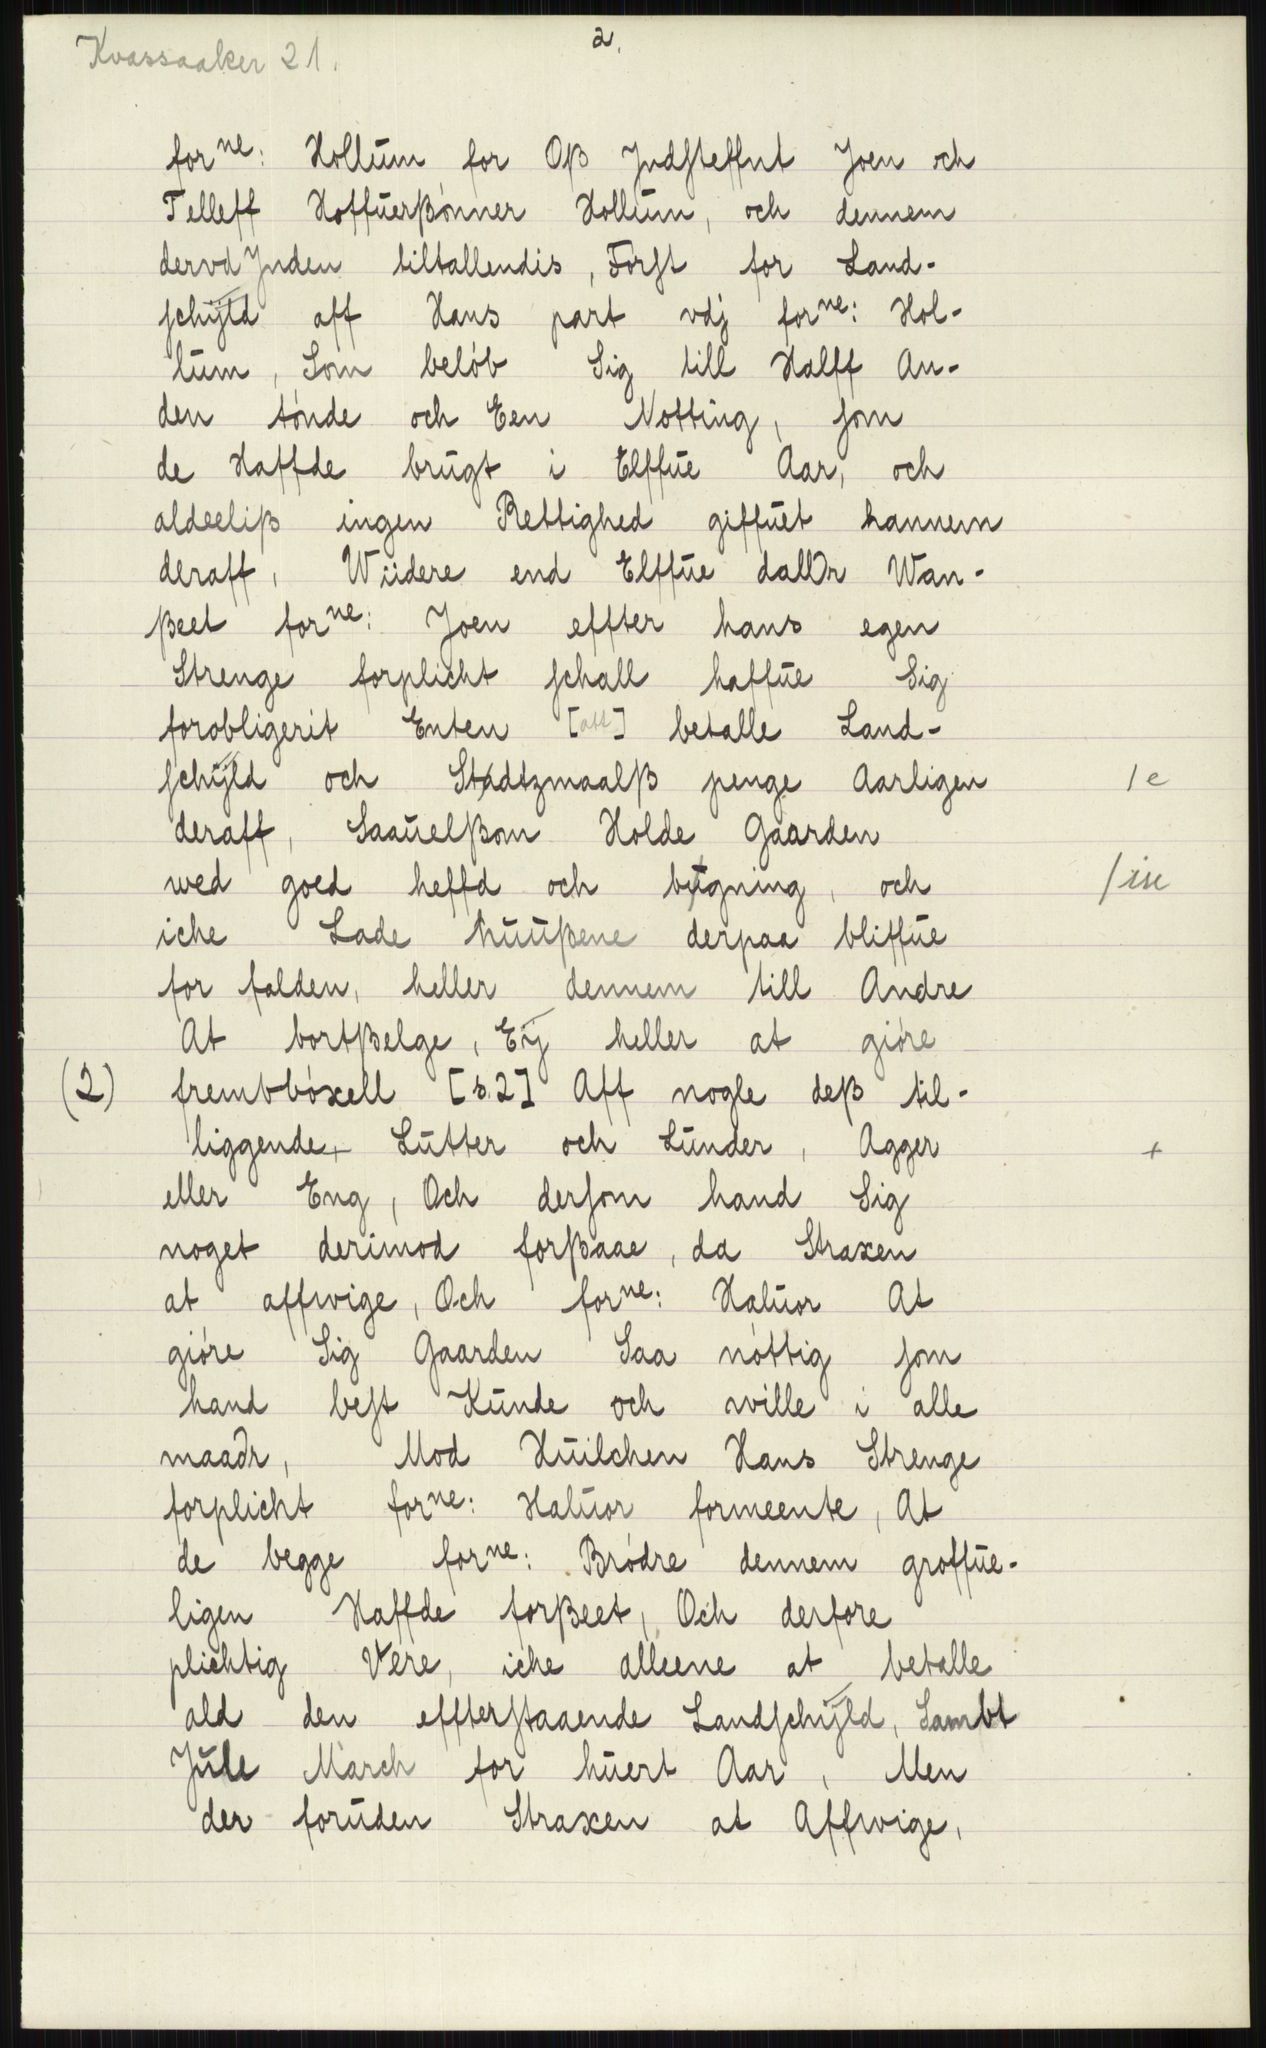 Kvassaaker 21.
2.
forne: Hollum for Oß Jndsteffnt Joen och
Telleff Hoffuerßønner Hollum, och dennem
dervdJnden tiltallendis, Først for Land-
schÿld aff Hans part vdj forne: Hol-
lum, Som beløb Sig till Halff An-
den tønde och Een Notting, som
de Haffde brugt i Elffue Aar, och
aldeeliß ingen Rettighed giffuet hannem
deraff, Wiidere end Elffue dallr Wan-
ßeet forne: Joen effter hans egen
Strenge forplicht schall haffue Sig
forobligerit Enten [att] betalle Land-
schÿld och Stedtzmaalß penge Aarligen /e
deraff, Saauelßom Holde Gaarden
wed goed heffd och bÿgning, och /ise
iche Lade huußene derpaa bliffue
for falden, heller dennem till Andre
At bortßelge, Eÿ heller at giøre
(2) frembbøxell [s.2] Aff nogle deß til-
liggende+ Lutter och Lunder, Agger +
eller Eng, Och dersom hand Sig
noget derimod forßaae, da Straxen
at affwige, Och forne: Haluor At
giøre Sig Gaarden Saa nøttig som
hand best Kunde och wille i alle
maadr, Mod Huilchen Hans Strenge
forplicht forne: Haluor formeente, At
de begge forne: Brødre dennem groffue-
ligen Haffde forßeet, Och derfore
plichtig Vere, iche alleene at betalle
ald den effterstaaende Landschÿld, Sambt
Jule March for huert Aar, Men
der foruden Straxen at Affwige,